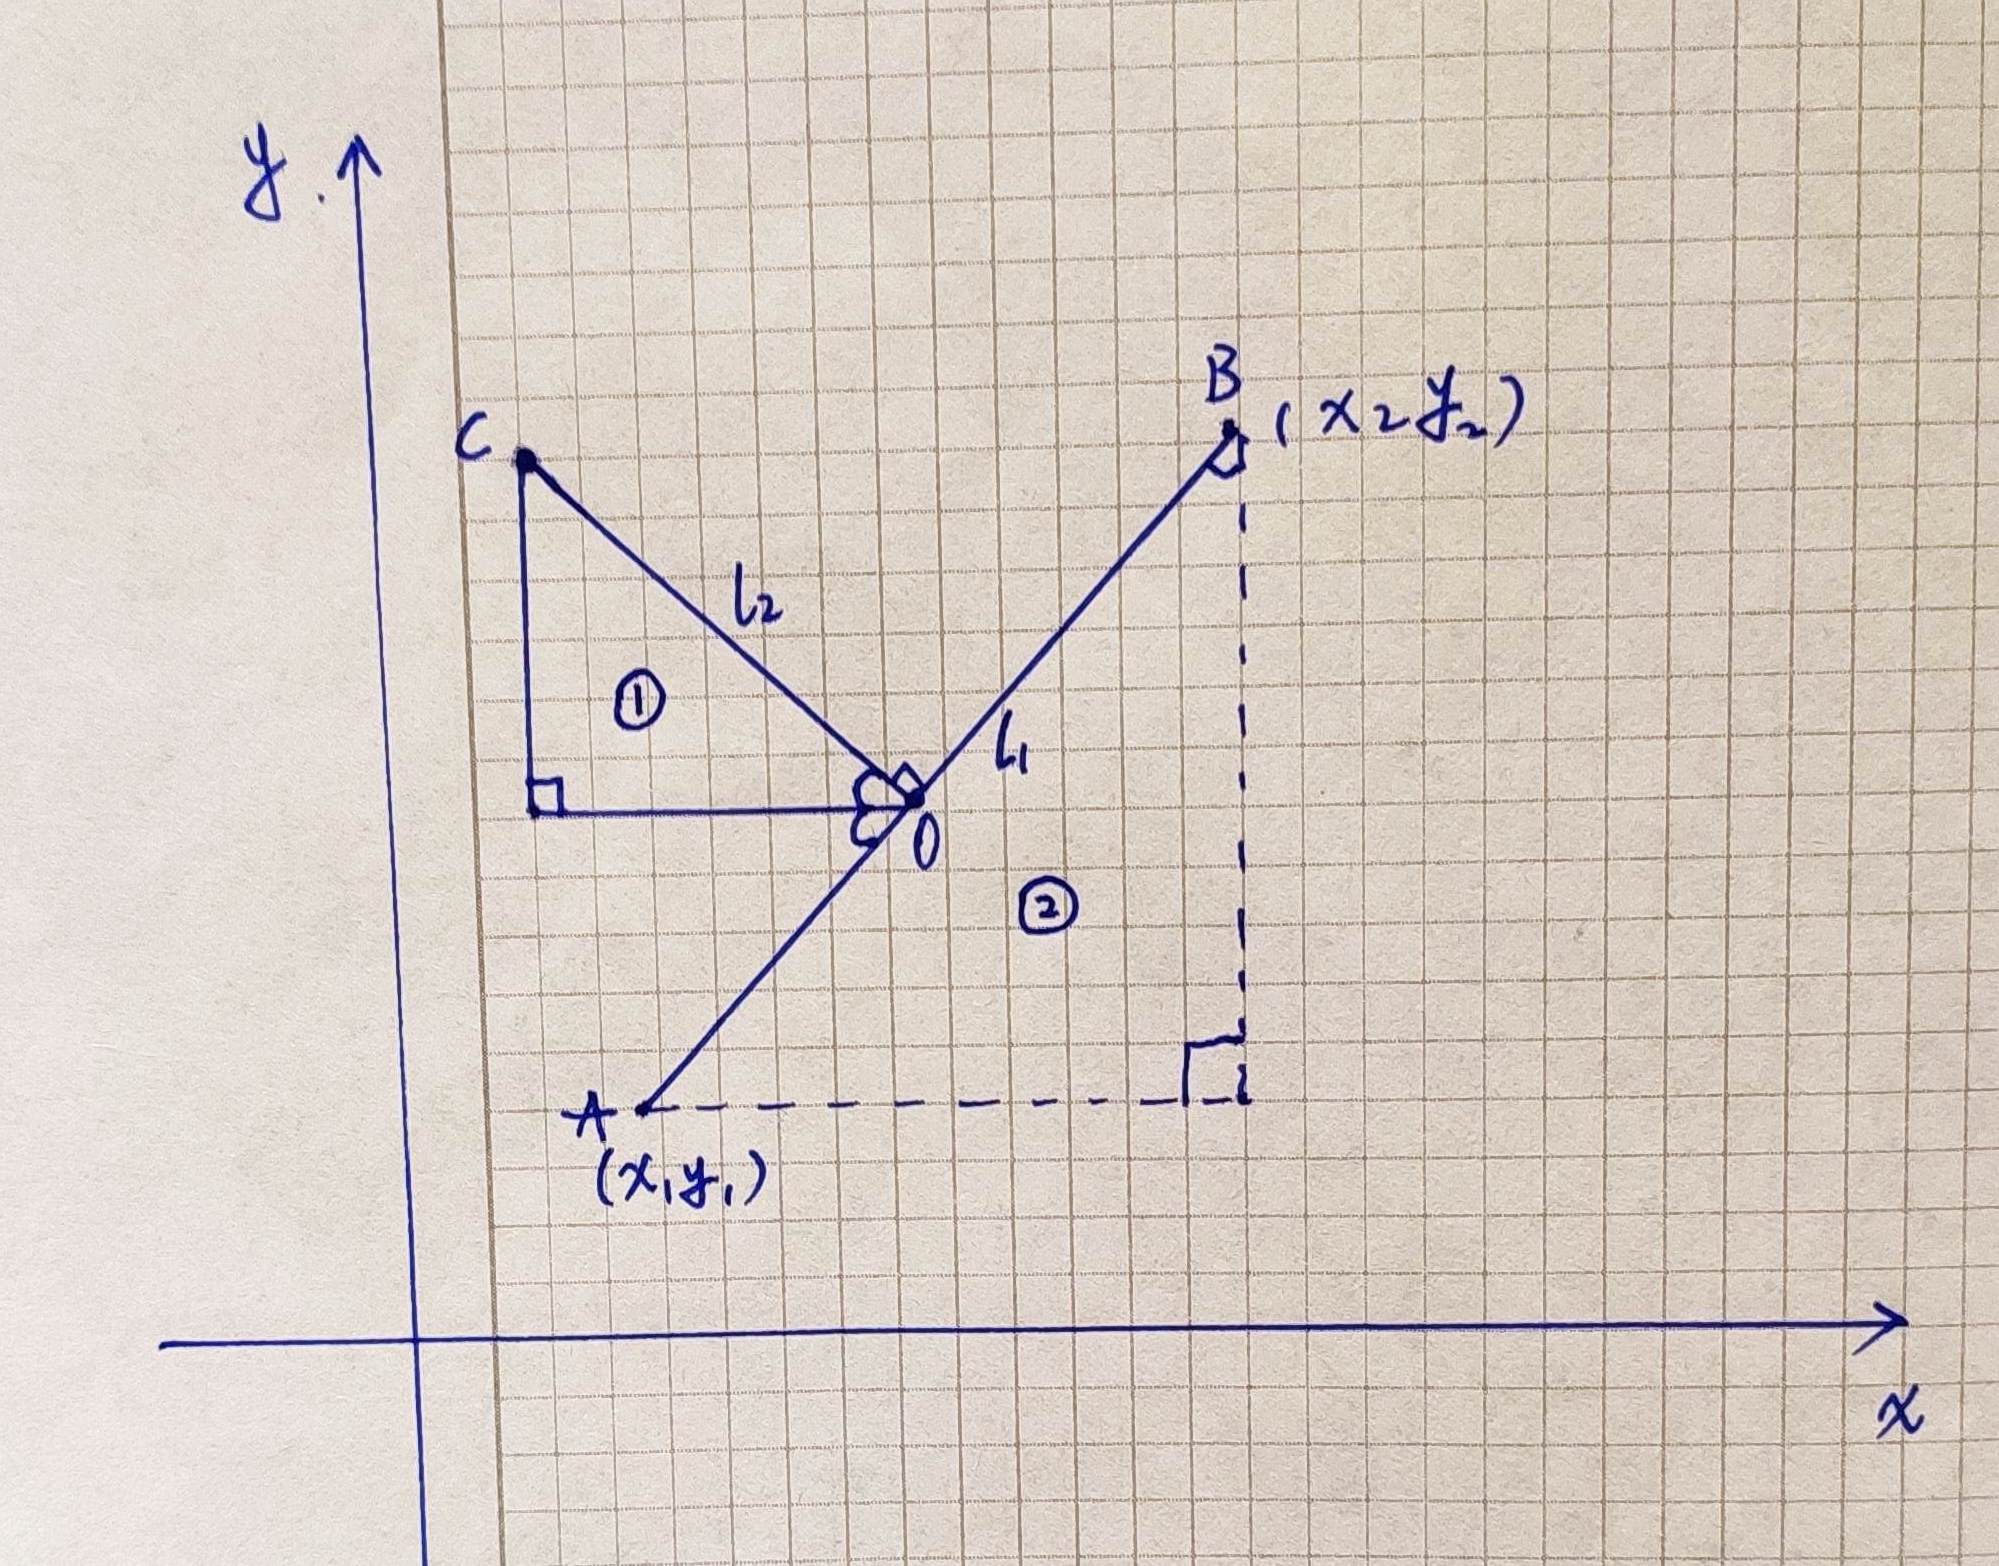 y.
B
(x₂ y₂)
C
l₂
①
l₁
O
②
A
(x₁ y₁)
x